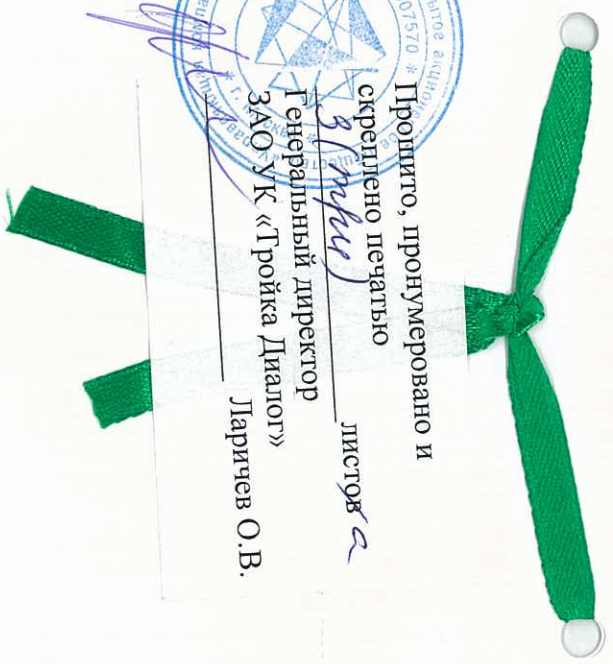 Прошито, пронумеровано и
скреплено печатью
3 (три) листов а
Генеральный директор
ЗАО УК «Тройка Диалог»
Ларичев О.В.
07570 *
* г.